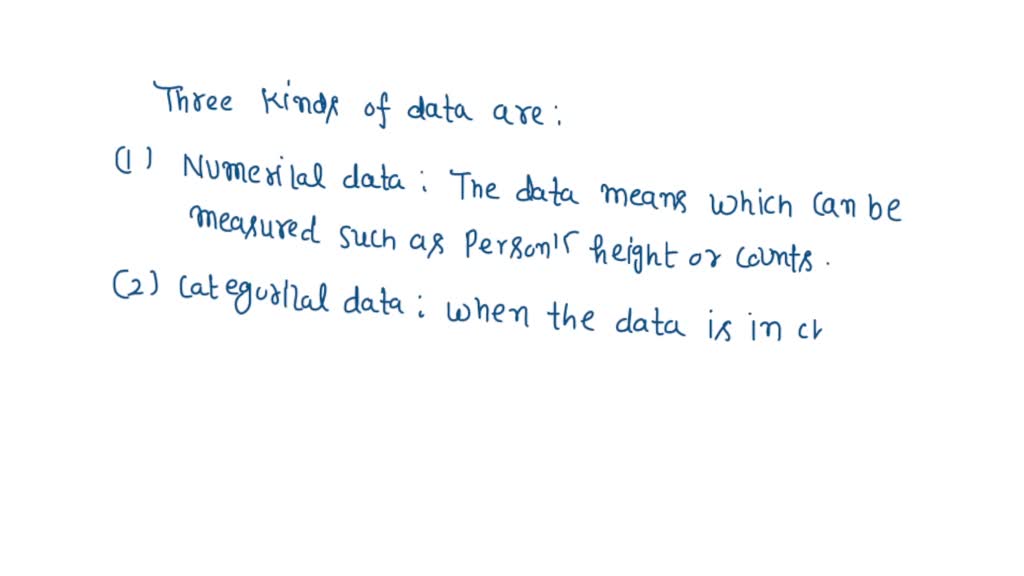 Three kinds of data are:
(1) Numerical data: The data means which can be
measured such as Person's height or counts.
(2) Categorical data: when the data is in ch